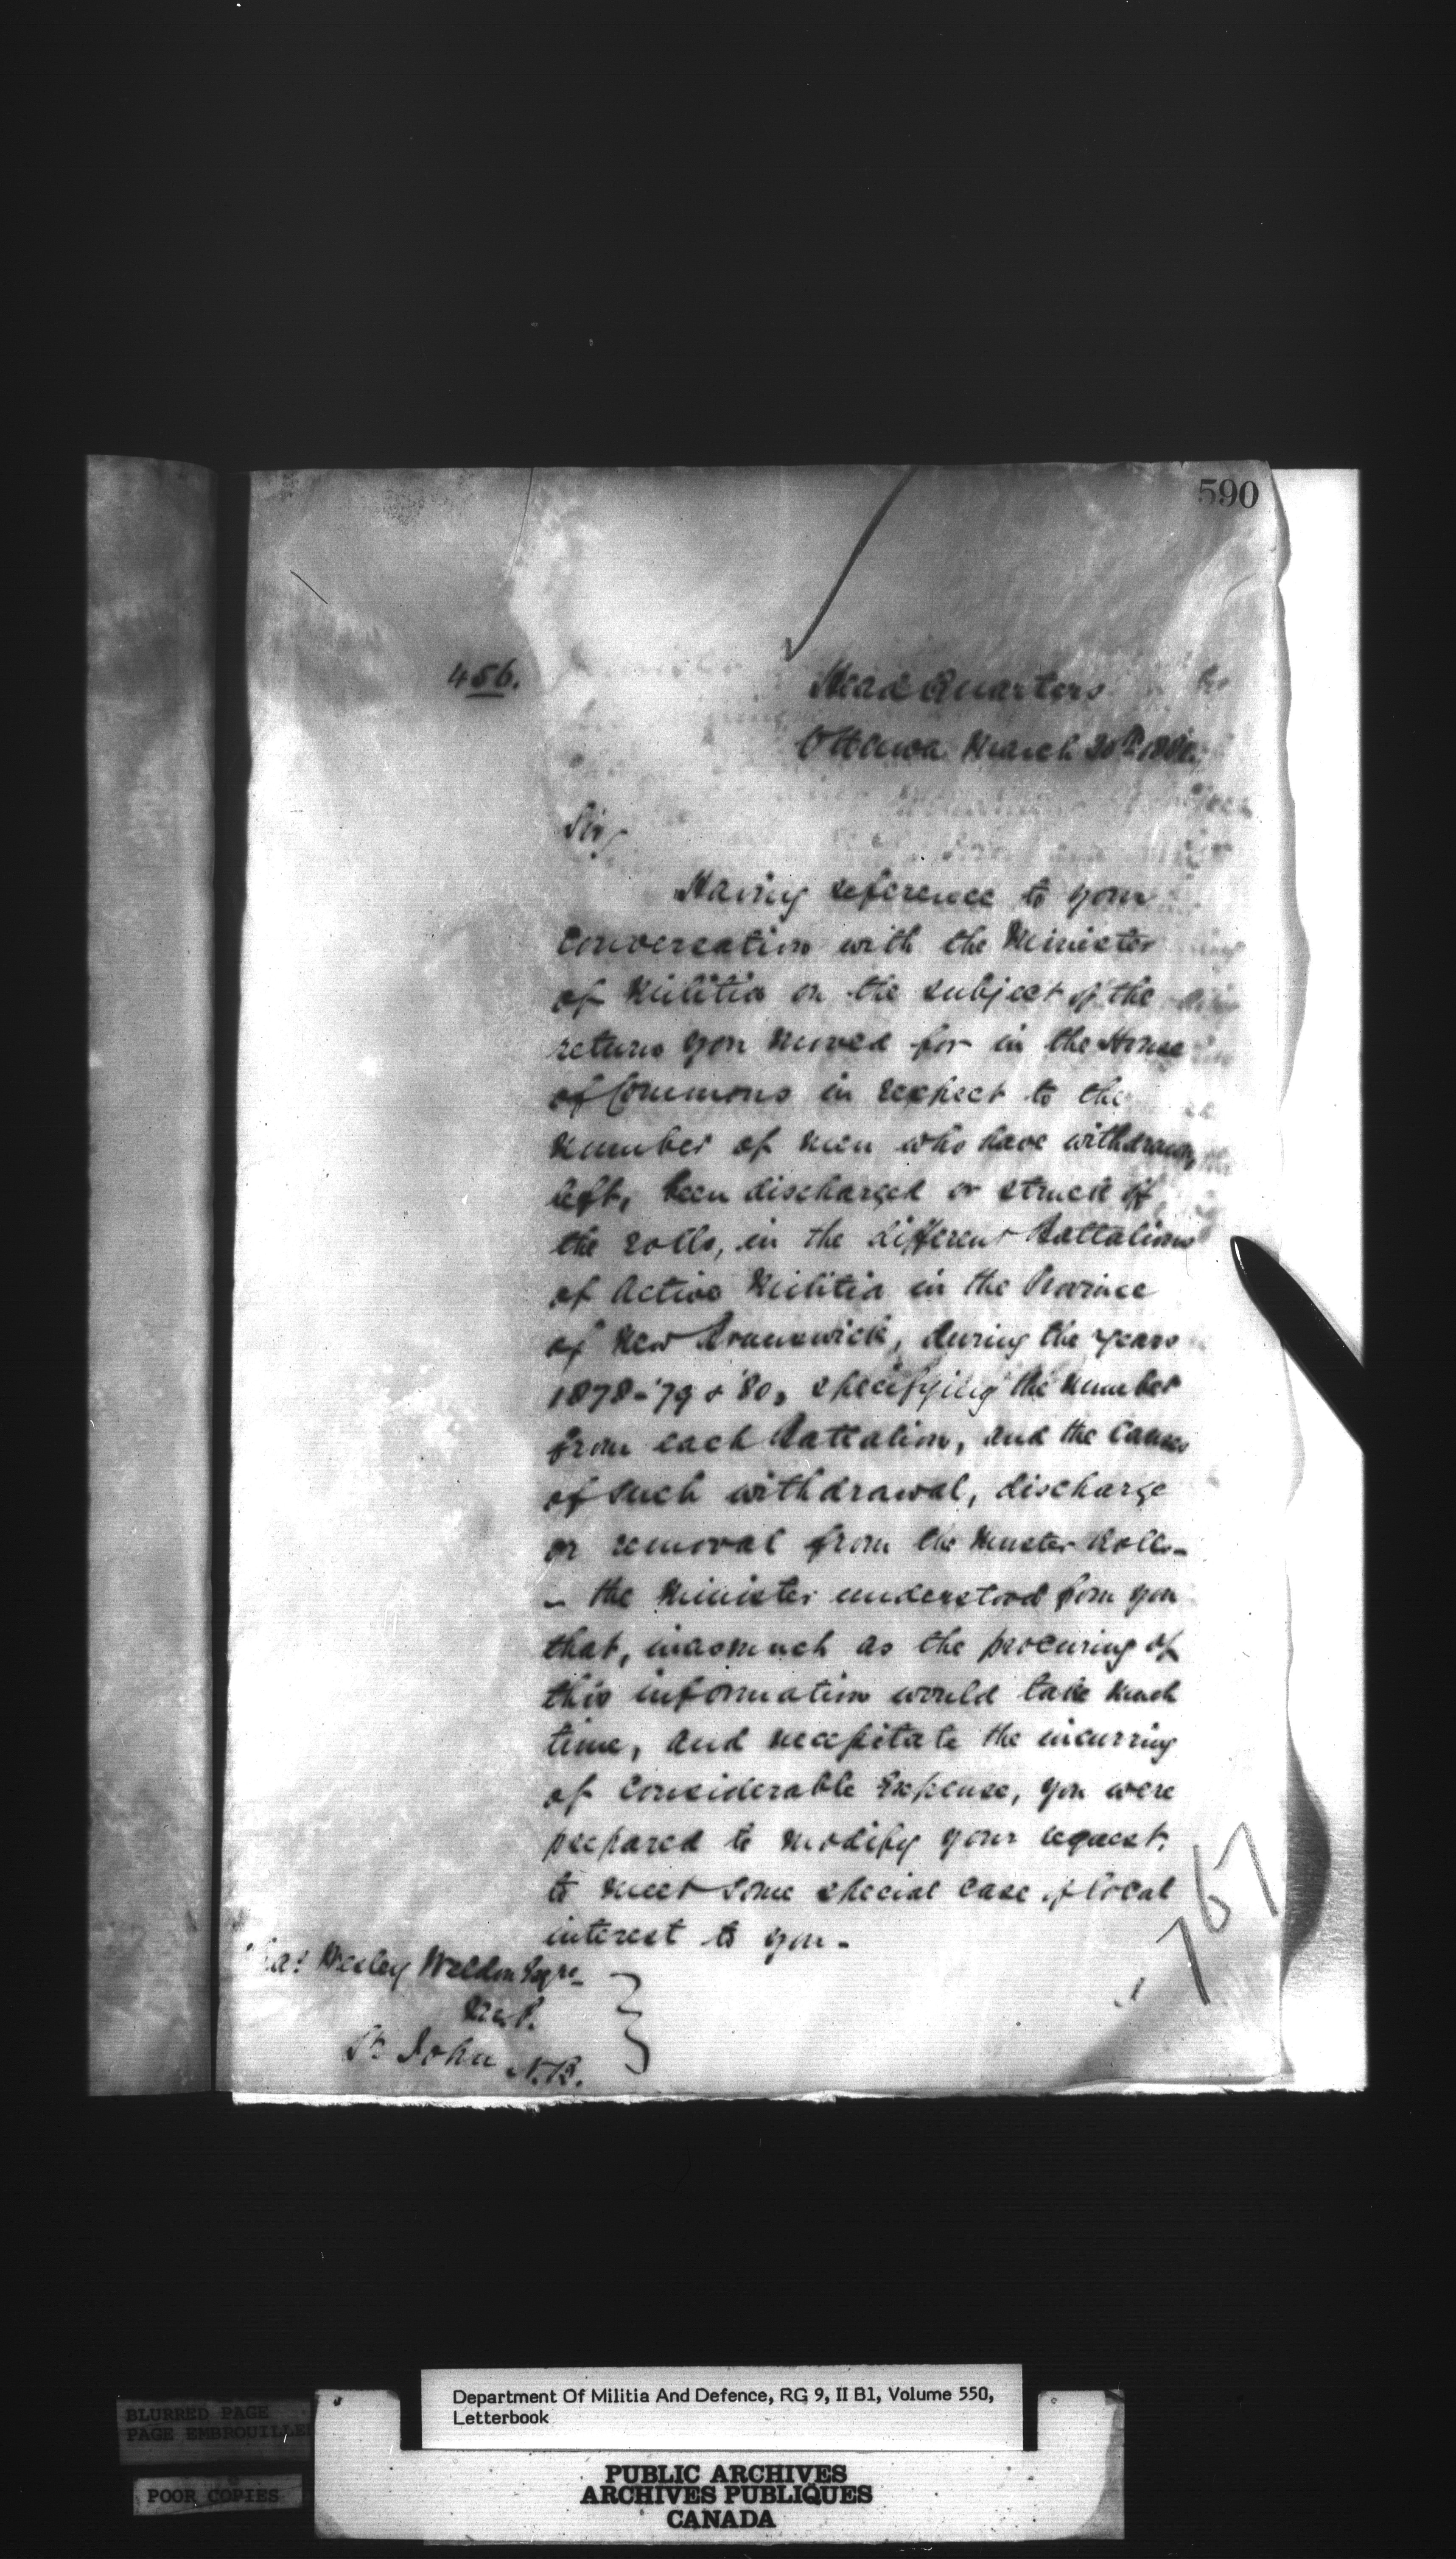 590
456.
Head Quarters
Ottawa March 30th
Sir,
Having reference to your
Conversation with the Minister
of Militia on the subject of the
return you moved for in the House
of Commons in respect to the
number of men who have withdrawn,
left, been discharged or struck off
the rolls, in the different Battalions
of Active Militia in the Province
of New Brunswick, during the years
1878-'79 & '80, specifying the number
from each Battalion, and the causes
of such withdrawal, discharge
or removal from the Muster Rolls-
- the Minister understood from you
that, inasmuch as the procuring of
this information would take much
time, and necessitate the incurring
of considerable expense, you were
prepared to modify your request,
to meet some special case of local
interest to you-
Wesley Weldon Esqre
M.P.
St John N.B.
767
BLURRED PAGE
PAGE EMBROUILLE
POOR COPIES
Department Of Militia And Defence, RG 9, II B1, Volume 550,
Letterbook
PUBLIC ARCHIVES
ARCHIVES PUBLIQUES
CANADA